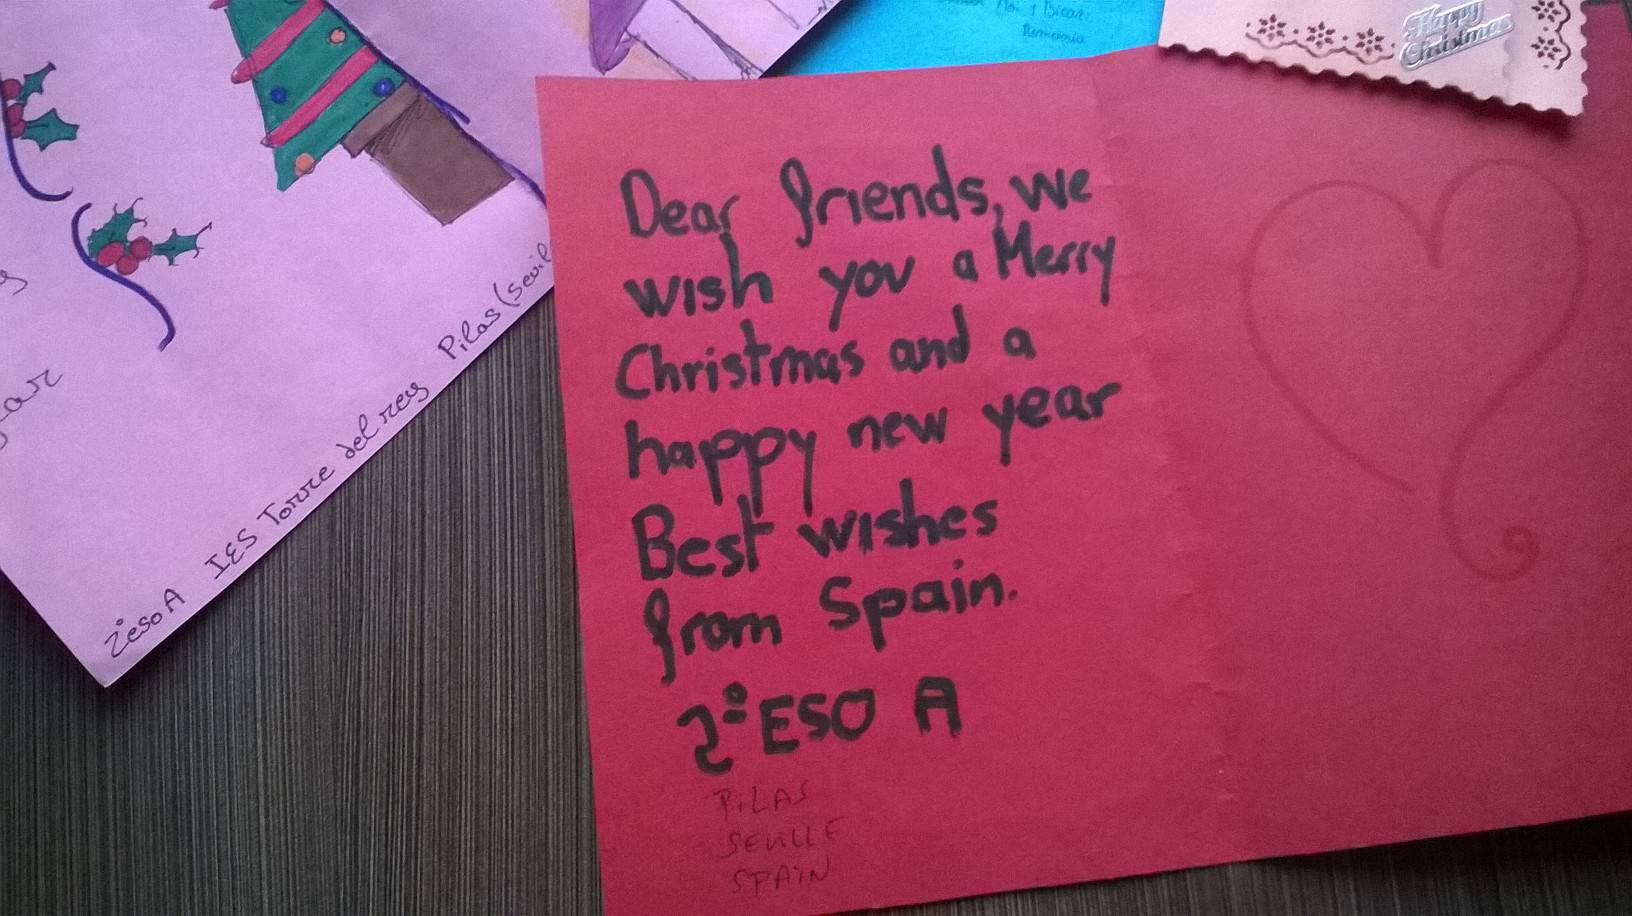 Dear friends, we
wish you a Merry
Christmas and a
happy new year
Best wishes
from Spain.
2º ESO A
PILAS
SEVILLE
SPAIN
2º eso A IES Torre del rey Pilas (Sevil
Romania
Happy
Christmas